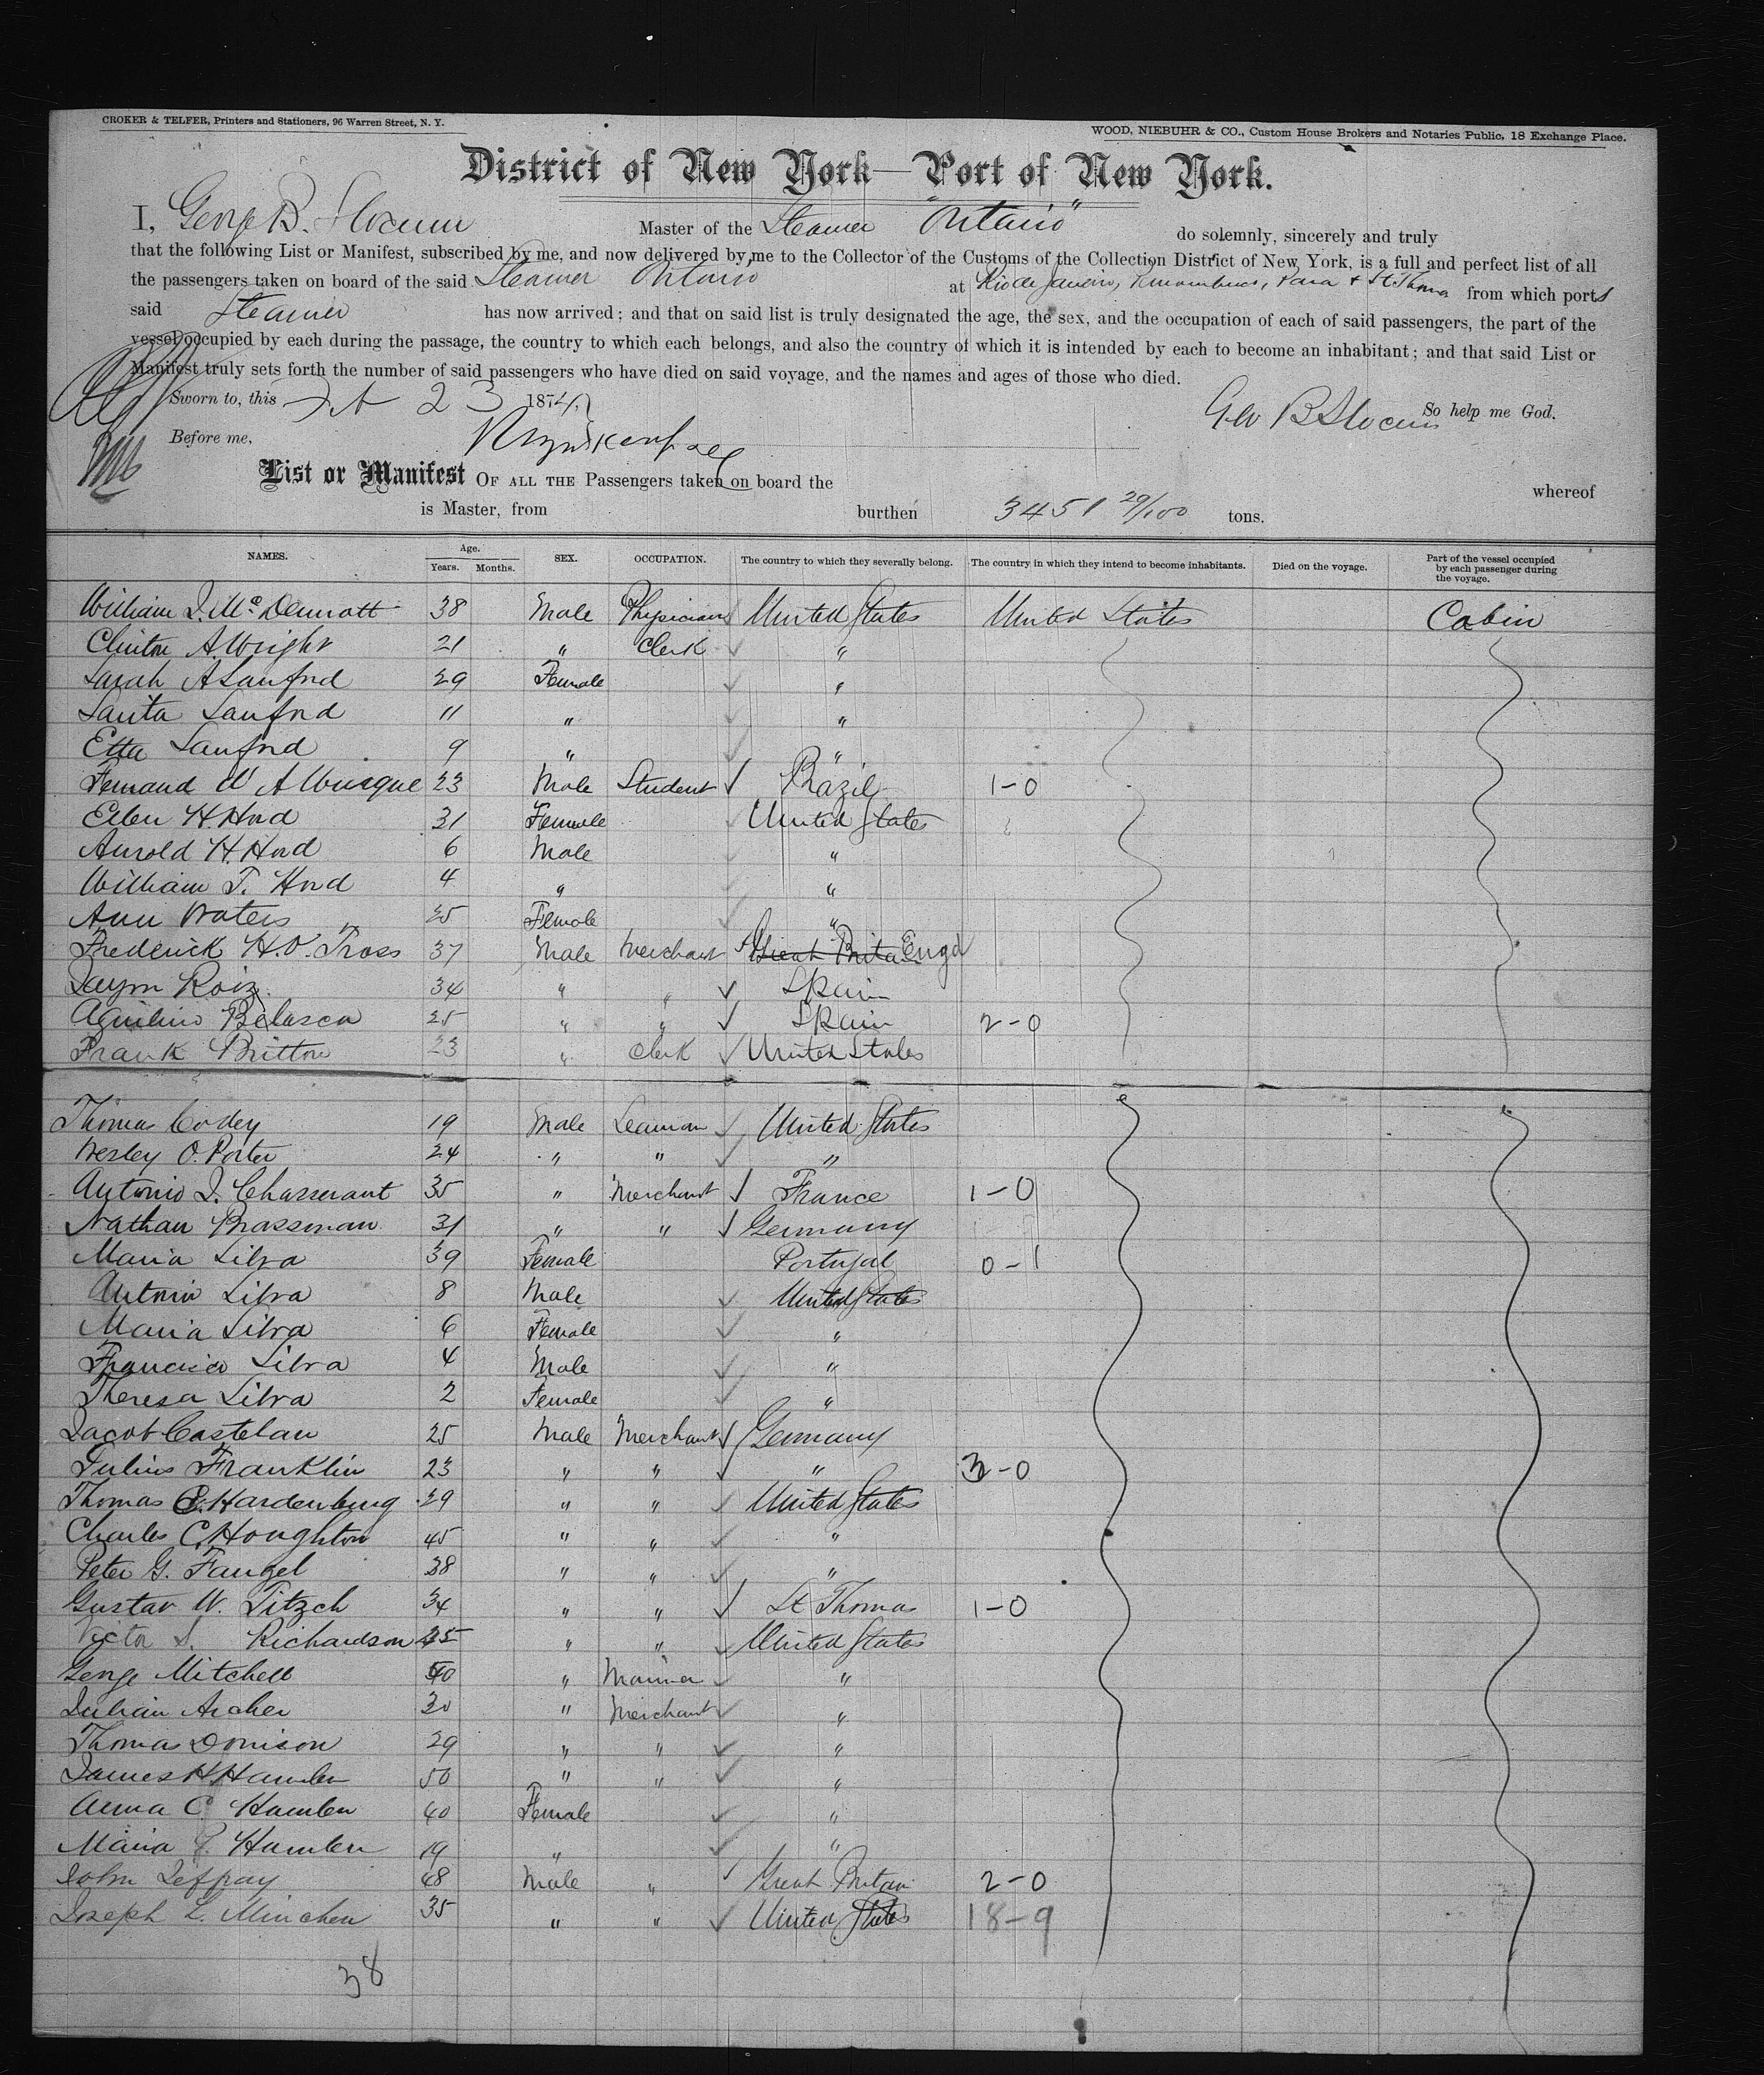 CROKER & TELFER, Printers and Stationers, 96 Warren Street, N. Y.
WOOD, NIEBUHR & CO., Custom House Brokers and Notaries Public, 18 Exchange Place.
District of New York—Port of New York.
I, George B. Slocum Master of the Steamer "Ontario" do solemnly, sincerely and truly
that the following List or Manifest, subscribed by me, and now delivered by me to the Collector of the Customs of the Collection District of New York, is a full and perfect list of all
the passengers taken on board of the said Steamer Ontario at Rio de Janeiro, Pernambuco, Para & St. Thomas from which ports
said Steamer has now arrived; and that on said list is truly designated the age, the sex, and the occupation of each of said passengers, the part of the
vessel occupied by each during the passage, the country to which each belongs, and also the country of which it is intended by each to become an inhabitant; and that said List or
Manifest truly sets forth the number of said passengers who have died on said voyage, and the names and ages of those who died.
Sworn to, this 23 1874 Geo B Slocum So help me God.
Before me,
List or Manifest OF ALL THE Passengers taken on board the whereof
is Master, from burthen 3451 29/100 tons.
NAMES. Age. Years. Months. SEX. OCCUPATION. The country to which they severally belong. The country in which they intend to become inhabitants. Died on the voyage. Part of the vessel occupied by each passenger during the voyage.
William J. McDermott 38 Male Physician United States United States Cabin
Clinton A. Wright 21 " Clerk "
Sarah A Sanford 29 Female "
Santa Sanford 11 " "
Etta Sanford 9 " "
Fernand 23 Male Student Brazil 1-0
Ellen H. Hord 31 Female United States
Arnold H. Hord 6 Male "
William T. Hord 4 " "
Ann Waters 25 Female "
Frederick H. O. Tross 37 Male Merchant Great Brita Engd
Jaym Roiz 34 " " Spain
Aquilino Belasca 25 " " Spain 2-0
Frank Britton 23 " Clerk United States
Thomas Codey 19 Male Seaman United States
Wesley O. Porter 24 " " "
Antonio J. Chasserant 35 " Merchant France 1-0
Nathan Brassman 31 " " Germany
Maria Silva 39 Female Portugal 0-1
Antonio Silva 8 Male United States
Maria Silva 6 Female "
Francisco Silva 4 Male "
Theresa Silva 2 Female "
Jacob Castelan 25 Male Merchant Germany
Julius Franklin 23 " " " 3-0
Thomas E. Hardenburg 29 " " United States
Charles C. Houghton 45 " " "
Peter G. Fangel 38 " " "
Gustav W. Titzch 34 " " St Thomas 1-0
Victor S. Richardson 25 " " United States
George Mitchell 40 " Mariner "
Julian Archer 30 " Merchant "
Thomas Donison 29 " " "
James H Hamlen 50 " " "
Anna C. Hamlen 40 Female "
Maria Hamlen 19 " "
John Jeffray 48 Male " Great Britain 2-0
Joseph L. Minchen 35 " " United States 18-9
38